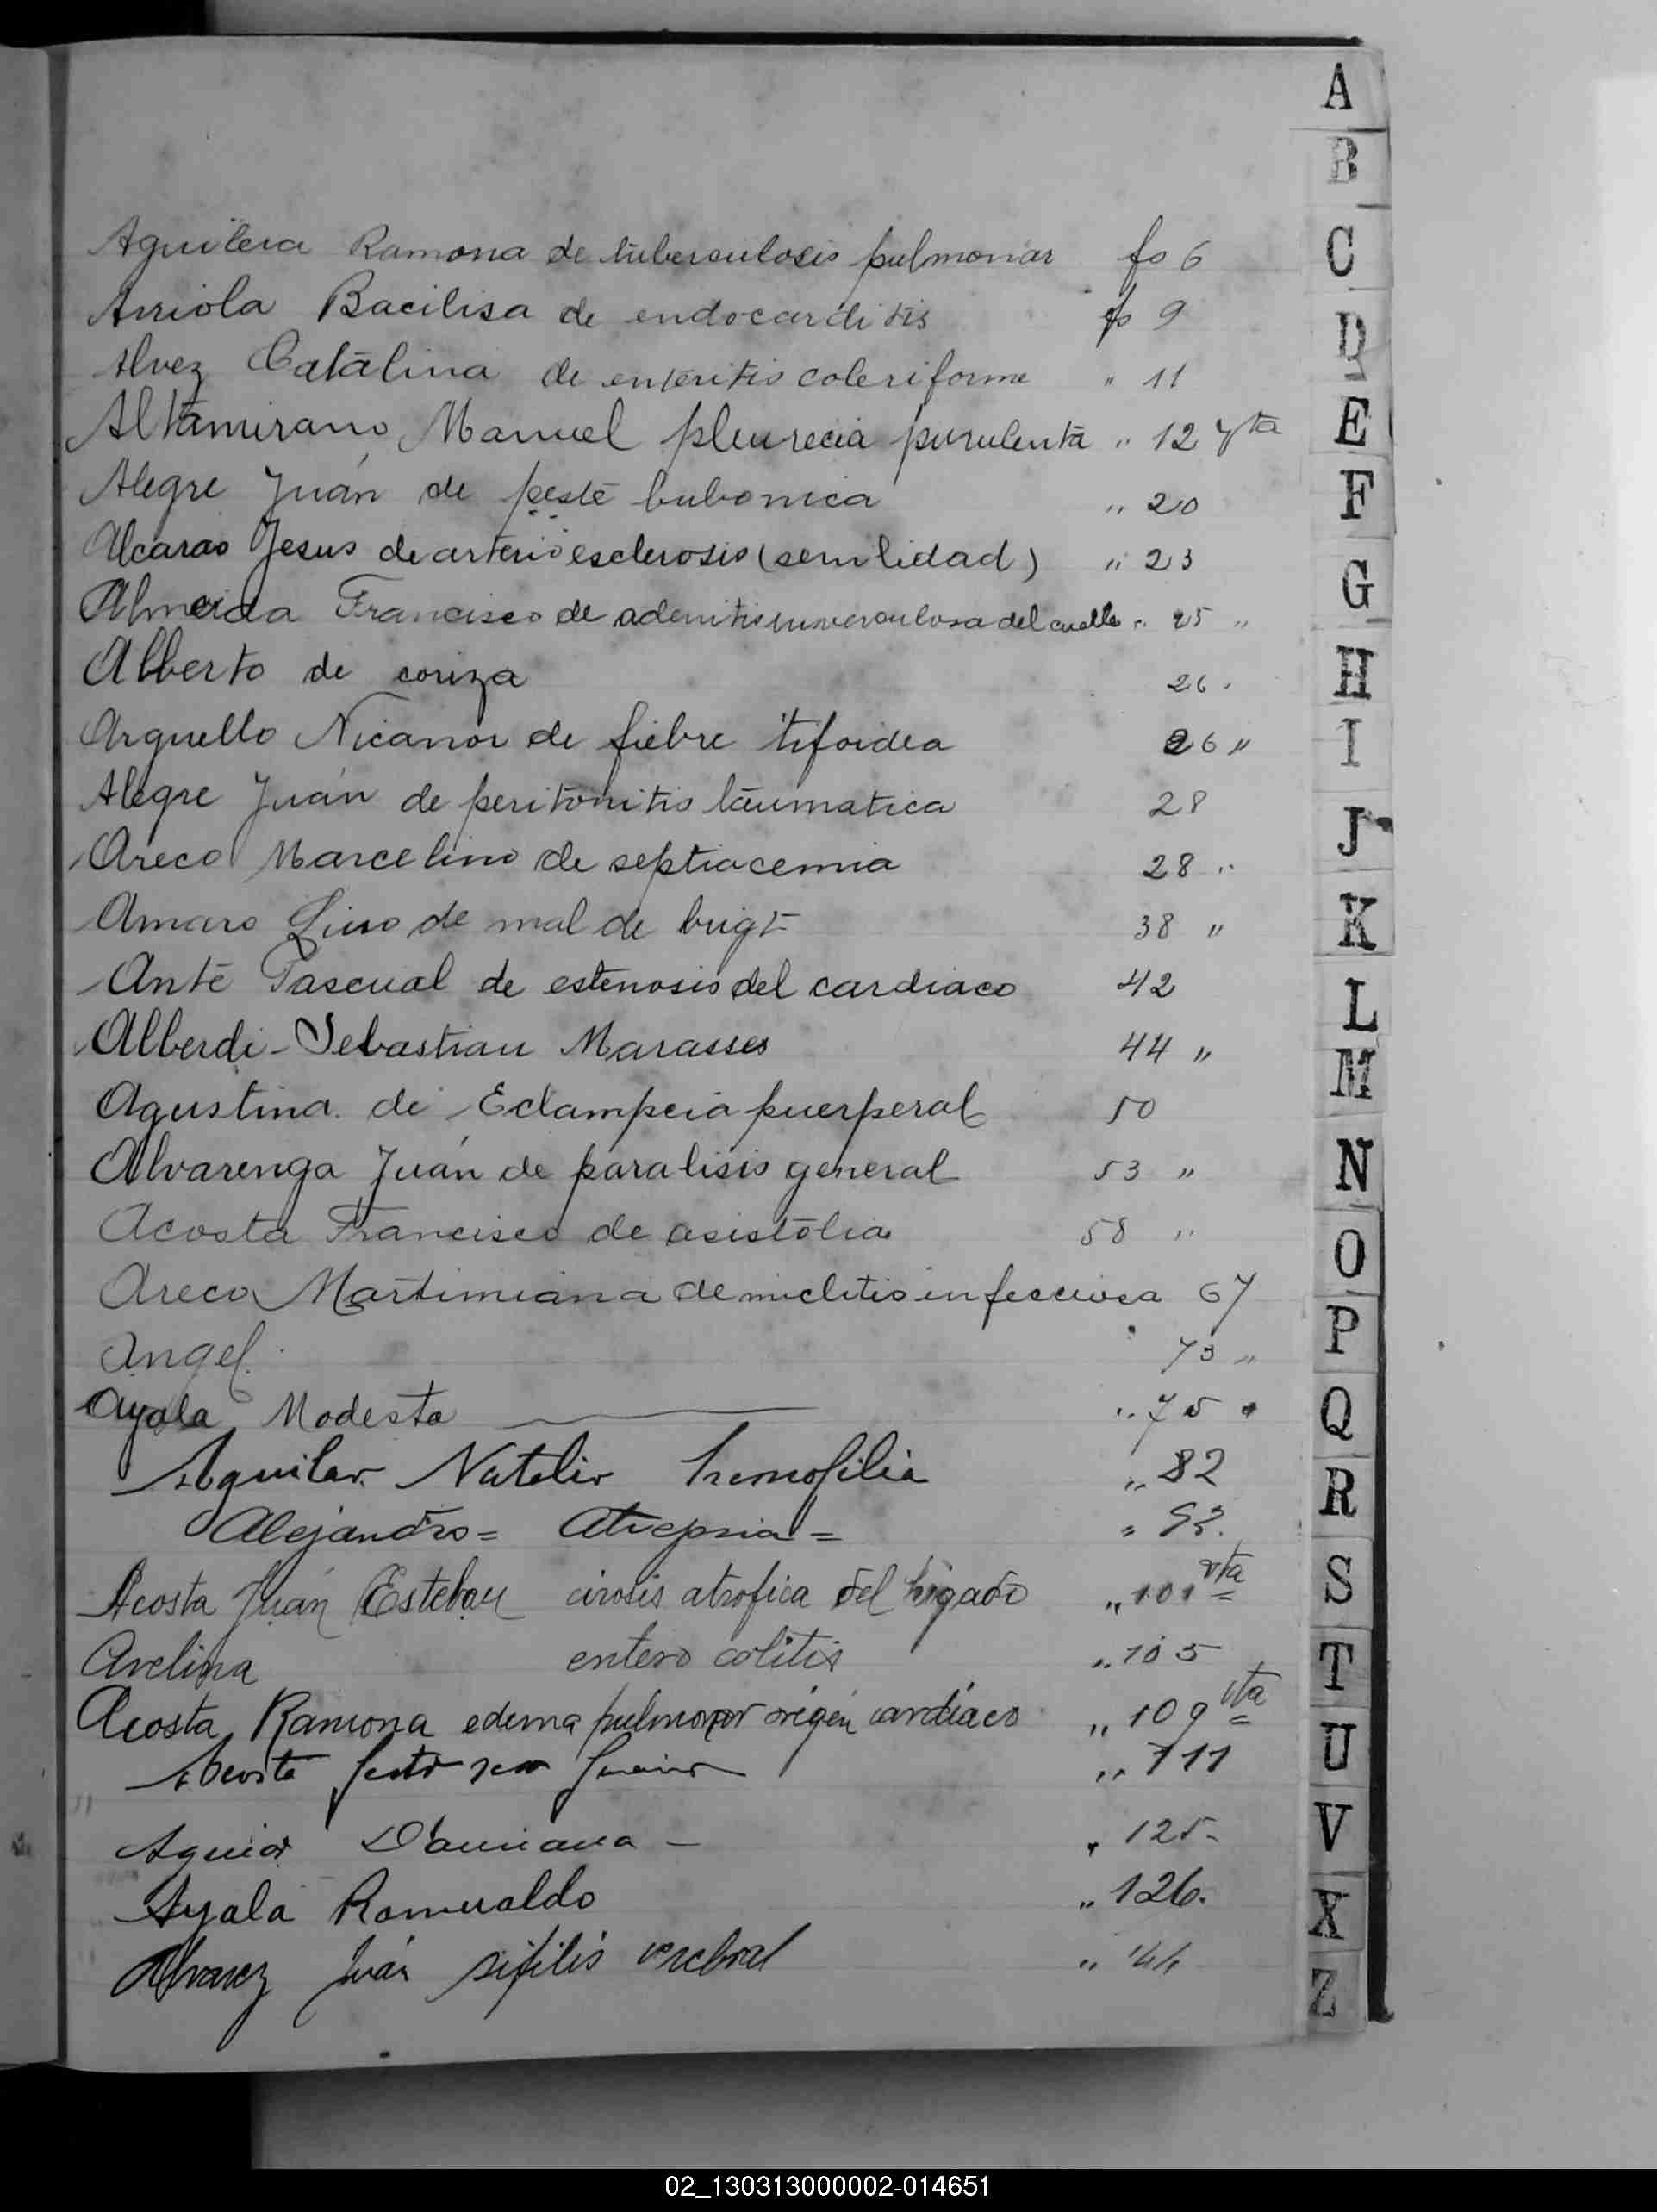 Aguilera Ramona de tuberculosis pulmonar fo 6
Arriola Bacilisa de endocarditis fo 9
Alvez Catalina de enteritis coleriforme " 11
Altamirano Manuel pleurecia purulenta " 12 vta
Alegre Juán de peste bubonica " 20
Alcaras Jesus de arterio esclerosis (senilidad) " 23
Almeida Francisco de adenitis tuverculosa del cuello " 25 "
Alberto de coriza 26 .
Arguello Nicanor de fiebre tifoidea 26 "
Alegre Juán de peritonitis taumatica 28
Areco Marcelino de septiocemia 28 "
Amaro Lino de mal de brigt 38 "
Ante Pascual de estenosis del cardiaco 42
Alberdi - Sebastian Marasses 44 "
Agustina de Eclampcia puerperal 50
Alvarenga Juán de paralisis general 53 "
Acosta Francisco de asistolia 58 "
Areco Martimiana de mielitis infecciosa 67
Angel. 73 "
Ayala Modesta " 75 "
Aguilar Natalio hemofilia " 82
Alejandro = Atrepsia = "
Acosta Juán Esteban cirosis atrofica del higado " 101 vta
Avelina entero colitis " 105
Acosta, Ramona edema pulmonar origén cardíaco " 109 vta
Acosta " 111
Aguiar Damiana - " 125-
Ayala Romualdo " 126.
Alvarez Juán sifilis cerebral "
A
B
C
D
E
F
G
H
I
J
K
L
M
N
O
P
Q
R
S
T
U
V
X
Z
02_130313000002-014651